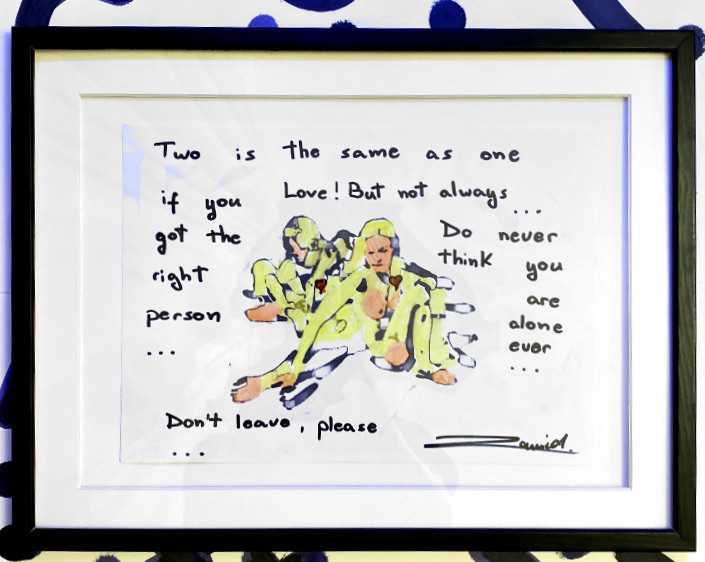 Two is the same as one
Love! But not always ...
if you
got the
right
person
...
Do never
think you
are
alone
ever
...
Don't leave, please
...